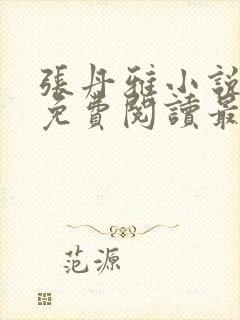 張丹雅小說
免費閱讀最
范源